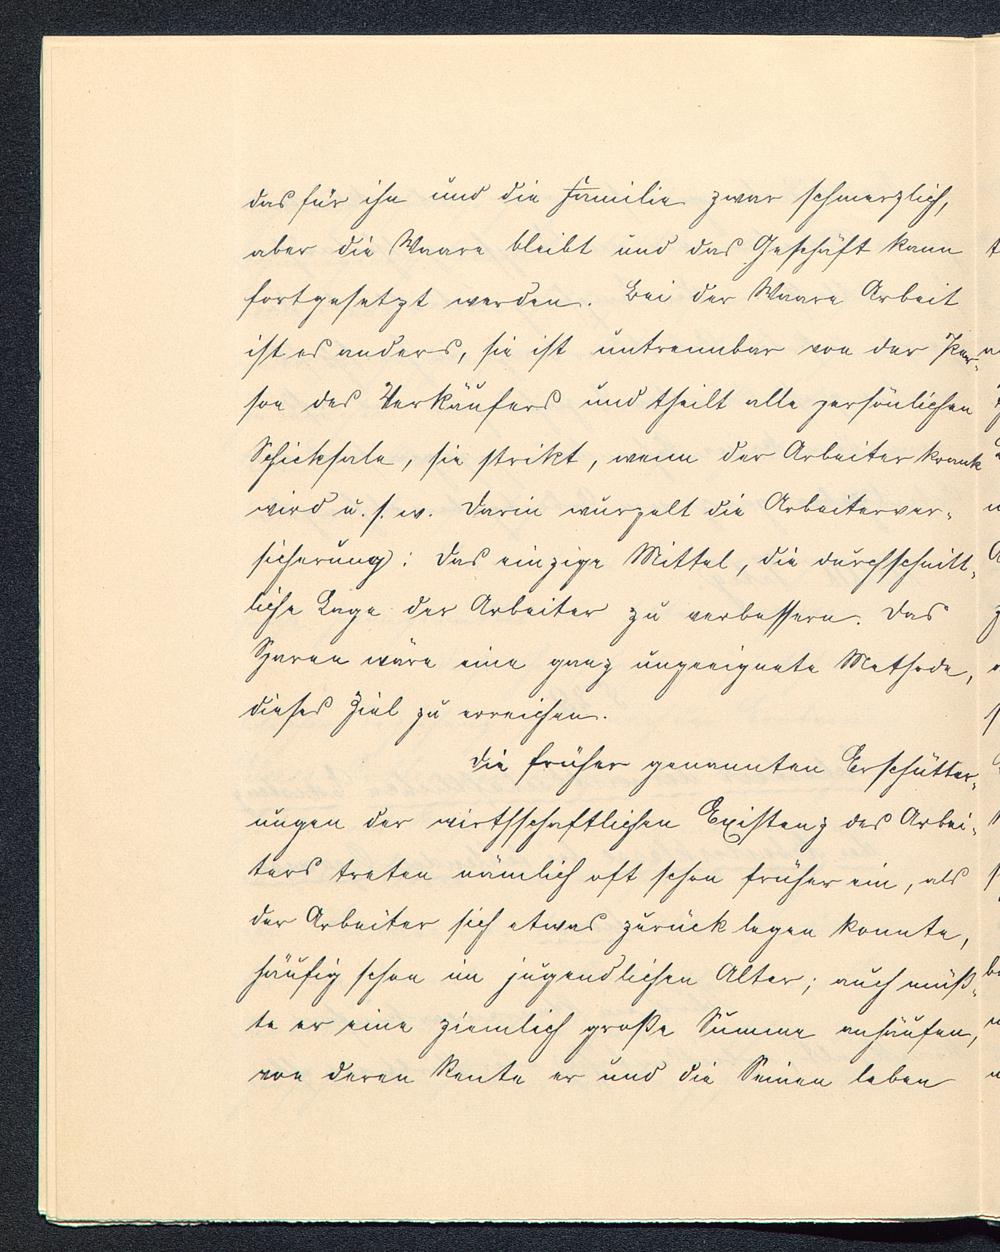 das für ihn und die Familie zwar schmerzlich,
aber die Waare bleibt und das Geschäft kann
fortgesetzt werden. Bei der Waare Arbeit
ist es anders, sie ist untrennbar von der Per-
son des Verkäufers und theilt alle persönlichen
Schicksale, sie strikt, wenn der Arbeiter krank
wird u. s. w. Darin wurzelt die Arbeiterver-
sicherung): Das einzige Mittel, die durchschnitt-
liche Lage der Arbeiter zu verbessern. Das
Sparen wäre eine ganz ungeeignete Methode,
dieses Ziel zu erreichen.
Die früher genannten Erschütter-
ungen der wirthschaftlichen Existenz des Arbei-
ters treten nämlich oft schon früher ein, als
der Arbeiter sich etwas zurück legen konnte,
häufig schon im jugendlichen Alter; auch müß-
te er eine ziemlich große Summe anhäufen,
von deren Rente er und die Seinen leben